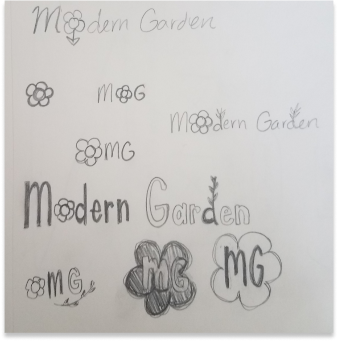 Modern Garden
M G
Modern Garden
MG
Modern Garden
MG
MG
MG